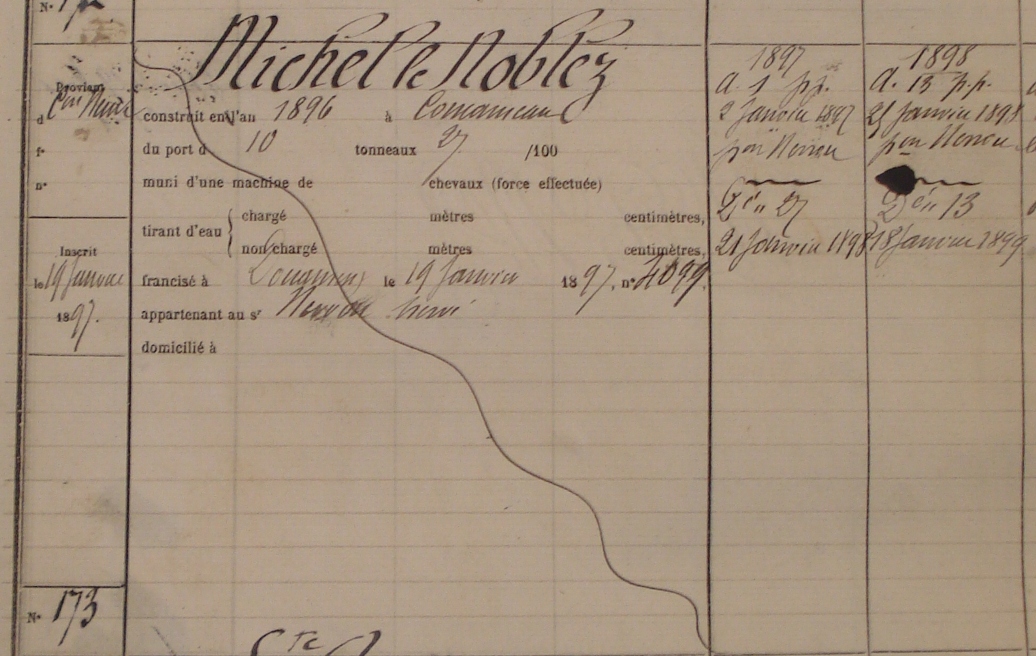 N° 172
Michel le Noblez
Provient
d
f°
n°
construit en l'an 1896 à Concarneau
du port d 10 tonneaux 27 /100
muni d'une machine de chevaux (force effectuée)
tirant d'eau { chargé mètres centimètres,
non chargé mètres centimètres,
Inscrit
le 19 Janvier
1897.
francisé à Douarnenez le 19 Janvier 1897. n° 4099.
appartenant au sr Hervé
domicilié à
1897
A. 1 p.p.
2 Janvier 1897
pour
Dén 27
21 Janvier 1898
1898
A. 13 p.p.
21 Janvier 1898
pour
Dén 13
18 Janvier 1899
N° 173